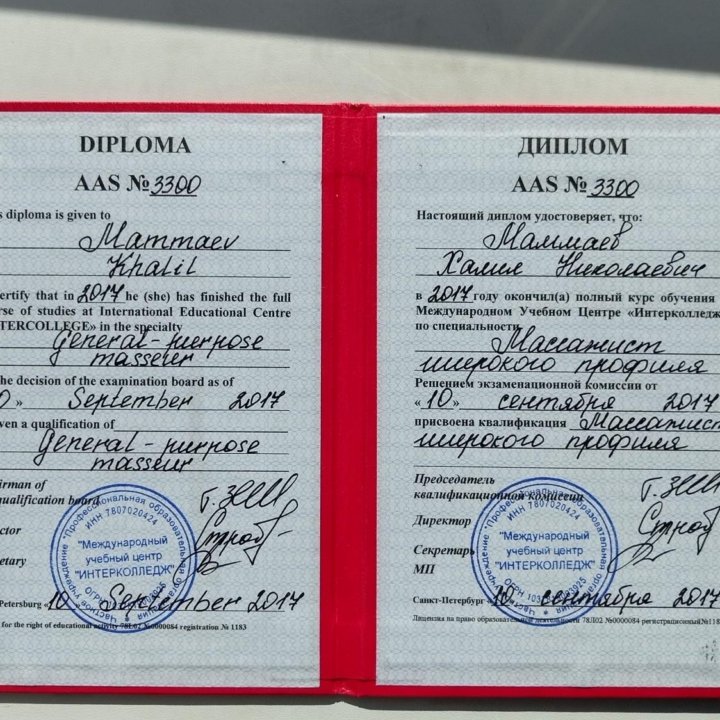 DIPLOMA
AAS № 3300
s diploma is given to
Mammaev
Khalil
ertify that in 2017 he (she) has finished the full
rse of studies at International Educational Centre
TERCOLLEGE» in the specialty
General-purpose
masseur
he decision of the examination board as of
0 » September 2017
en a qualification of
General-purpose
masseur
irman of
qualification board
ctor
retary
Petersburg «10 September 2017
for the right of educational activity 78Л02 №0000084 registration № 1183
"Профессиональная образовательная организация
Частное учреждение
ИНН 7807020424
"Международный
учебный центр
"ИНТЕРКОЛЛЕДЖ"
ДИПЛОМ
AAS № 3300
Настоящий диплом удостоверяет, что:
Маммаев
Халил Николаевич
в 2017 году окончил(а) полный курс обучения
Международном Учебном Центре «Интерколледж
по специальности
Массажист
широкого профиля
Решением экзаменационной комиссии от
« 10 » сентября 2017
присвоена квалификация Массажист
широкого профиля
Председатель
квалификационной комиссии
Директор
Секретарь
МП
Санкт-Петербург «10 сентября 2017
Лицензия на право образовательной деятельности 78Л02 №0000084 регистрационный№118
"Профессиональная образовательная организация
Частное учреждение
ИНН 7807020424
"Международный
учебный центр
"ИНТЕРКОЛЛЕДЖ"